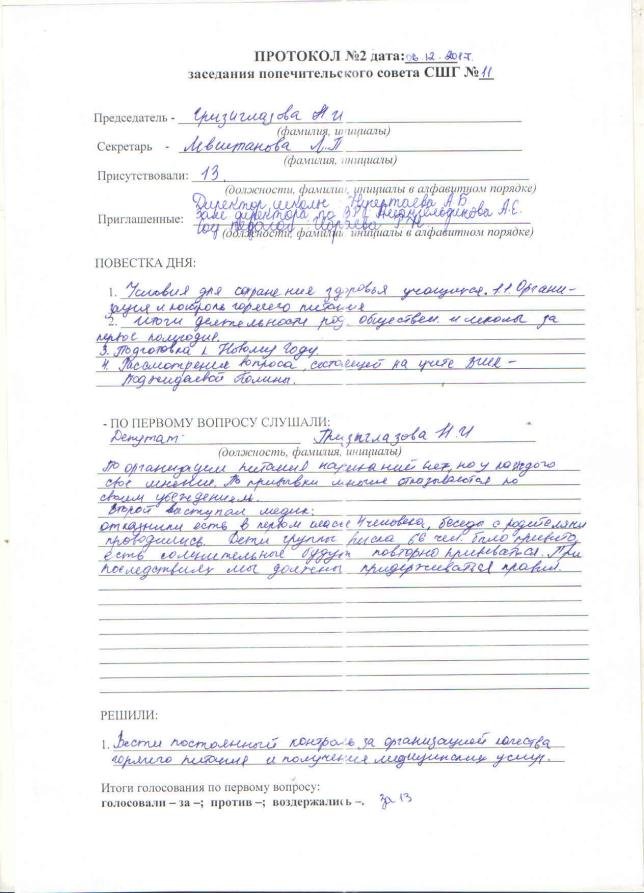 ПРОТОКОЛ №2 дата: 06.12.2017г.
заседания попечительского совета СШГ № 11
Председатель - Гризиглазова Н И
(фамилия, инициалы)
Секретарь - Л.П
(фамилия, инициалы)
Присутствовали: 13
(должности, фамилии, инициалы в алфавитном порядке)
Директор школы А Б
Приглашенные: Зам директора по ВР А.Е.
Соц педагог
(должности, фамилии, инициалы в алфавитном порядке)
ПОВЕСТКА ДНЯ:
1. Условия для сохранения здоровья учащихся. 1.1 Органи-
зация и контроль горячего питания
2. Итоги деятельности род. обществен. и школы за
первое полугодие.
3. Подготовка к Новому Году.
4. Рассмотрение вопроса, состоящей на учете ВШК -
Полины.
- ПО ПЕРВОМУ ВОПРОСУ СЛУШАЛИ:
Депутат: Гризиглазова Н.И
(должность, фамилия, инициалы)
По организации питания нареканий нет, но у каждого
свое мнение. По прививки многие отказываются по
своим убеждениям.
Второй выступал медик:
отказники есть в первом классе 4 человека, беседы с родителями
проводились. Дети группы риска 66 чел. было привито
есть сомнительные будут повторно прививаться. При
последствиях мы должны придерживаться правил.
РЕШИЛИ:
1. Вести постоянный контроль за организацией качества
горячего питания и получения медицинских услуг.
Итоги голосования по первому вопросу:
голосовали – за –; против –; воздержались –. за 13